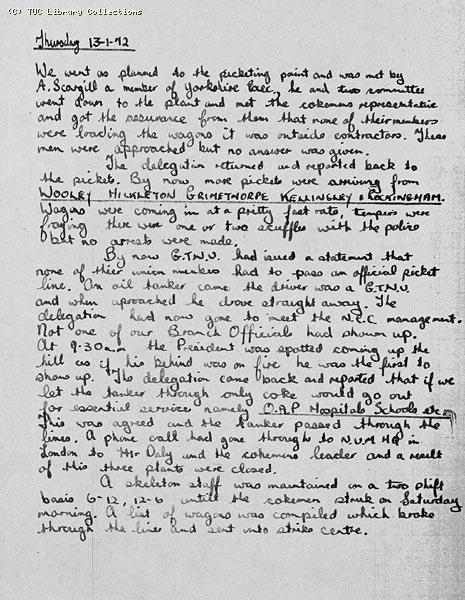 (C) TUC Library Collections
Thursday 13-1-72
We went as planned to the picketing point and was met by
A. Scargill a member of Yorkshire Exec, he and two committee
went down to the plant and met the cokemens representative
and got the assurance from them that none of their members
were loading the wagons it was outside contractors. These
men were approached but no answer was given.
The delegation returned and reported back to
the pickets. By now more pickets were arriving from
WOOLEY HICKLETON GRIMETHORPE KELLINGLEY & ROCKINGHAM.
Wagons were coming in at a pretty fast rate, tempers were
fraying there were one or two scuffles with the police
but no arrests were made.
By now G.T.N.U. had issued a statement that
none of thier union members had to pass an official picket
line. An oil tanker came the driver was a G.T.N.U.
and when aproached he drove straight away. The
delegation had now gone to meet the N.C.C management.
Not one of our Branch Officials had shown up.
At 9-30am the President was spotted coming up the
hill as if his behind was on fire he was the first to
show up. The delegation came back and reported that if we
let the tanker through only coke would go out
for essential services namely O.A.P Hospitals Schools etc.
This was agreed and the tanker passed through the
lines. A phone call had gone through to N.U.M HQ in
London to Mr Daly and the cokemens leader and a result
of this three plants were closed.
A skeleton staff was maintained on a two shift
basis 6-12, 12-6 untill the cokemen struck on Saturday
morning. A list of wagons was compiled which broke
through the lines and sent into strike centre.